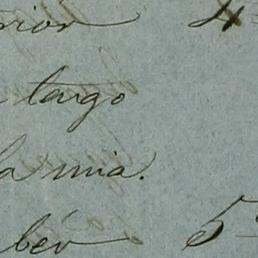 rior 4
targo
la mia.
bér 5